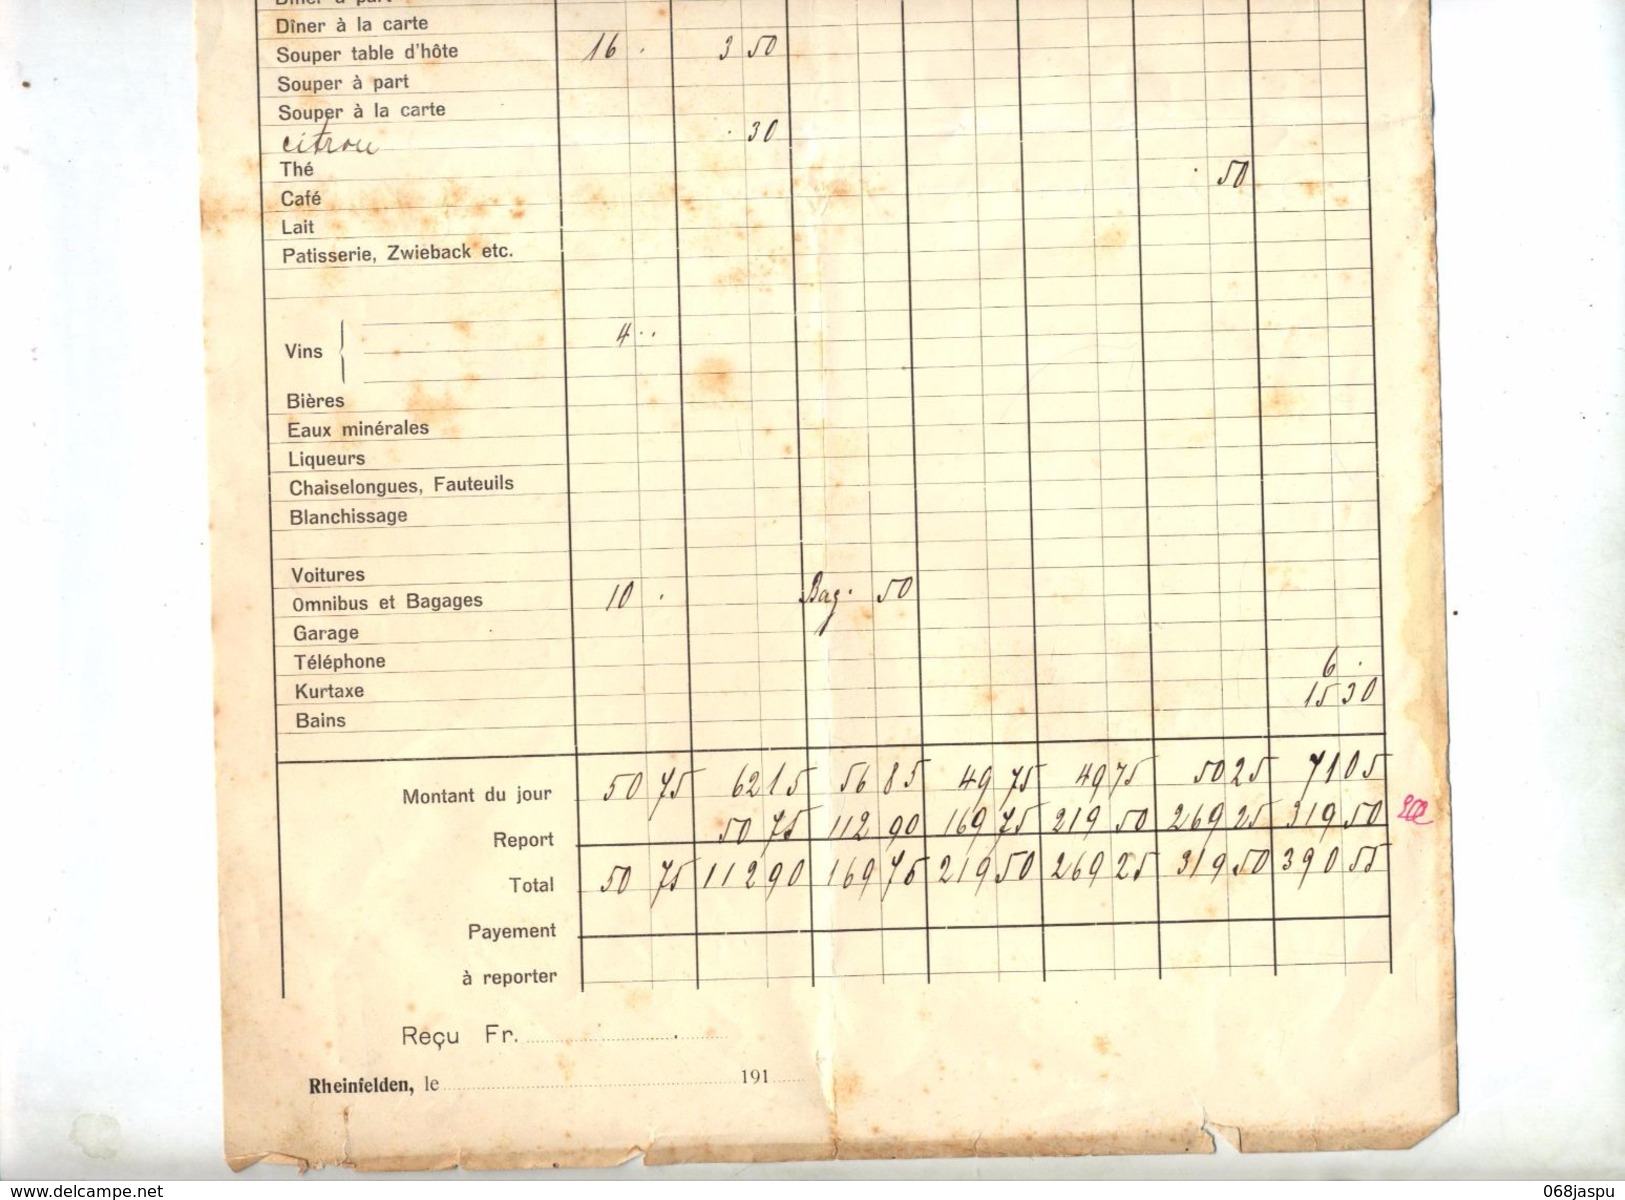 Dîner à part
Dîner à la carte
Souper table d'hôte 16 . 3 50
Souper à part
Souper à la carte
citron . 30
Thé . 50
Café
Lait
Patisserie, Zwieback etc.
Vins { 4 . .
Bières
Eaux minérales
Liqueurs
Chaiselongues, Fauteuils
Blanchissage
Voitures
Omnibus et Bagages 10 . Bag. 50
Garage
Téléphone 6 .
Kurtaxe 15 30
Bains
Montant du jour 50 75 62 15 56 85 49 75 49 75 50 25 71 05
Report 50 75 112 90 169 75 219 50 269 25 319 50
Total 50 75 112 90 169 75 219 50 269 25 319 50 390 55
Payement
à reporter
Reçu Fr.
Rheinfelden, le 191
www.delcampe.net 068jaspu